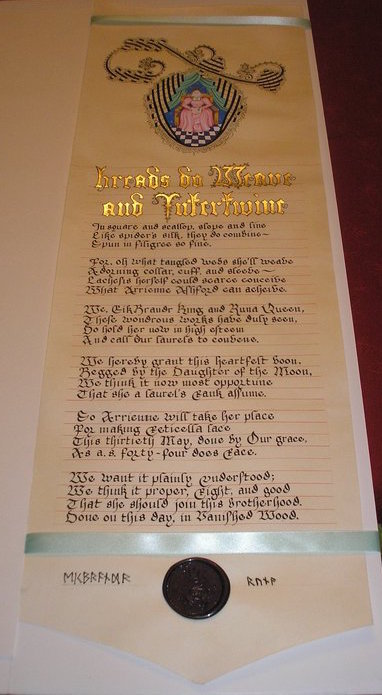 Threads do Weave
and Intertwine
In square and scallop, slope and line
Like spider's silk, they do combine~
Spun in filigree so fine.
For, oh what tangled webs she'll weave
Adorning collar, cuff, and sleeve~
Lachesis herself could scarce conceive
What Arrienne Ashford can acheive.
We, EikBrandr King and Runa Queen,
These wondrous works have duly seen,
Do hold her now in high esteem
And call our laurels to convene.
We hereby grant this heartfelt boon.
Begged by the Daughter of the Moon,
We think it now most opportune
That she a laurel's Rank assume.
So Arrienne will take her place
For making Reticella lace
This thirtieth May, done by Our grace,
As a.s. forty-four does Race.
We want it plainly understood;
We think it proper, Right, and good
That she should join this brotherhood.
Done on this day, in Vanished Wood.